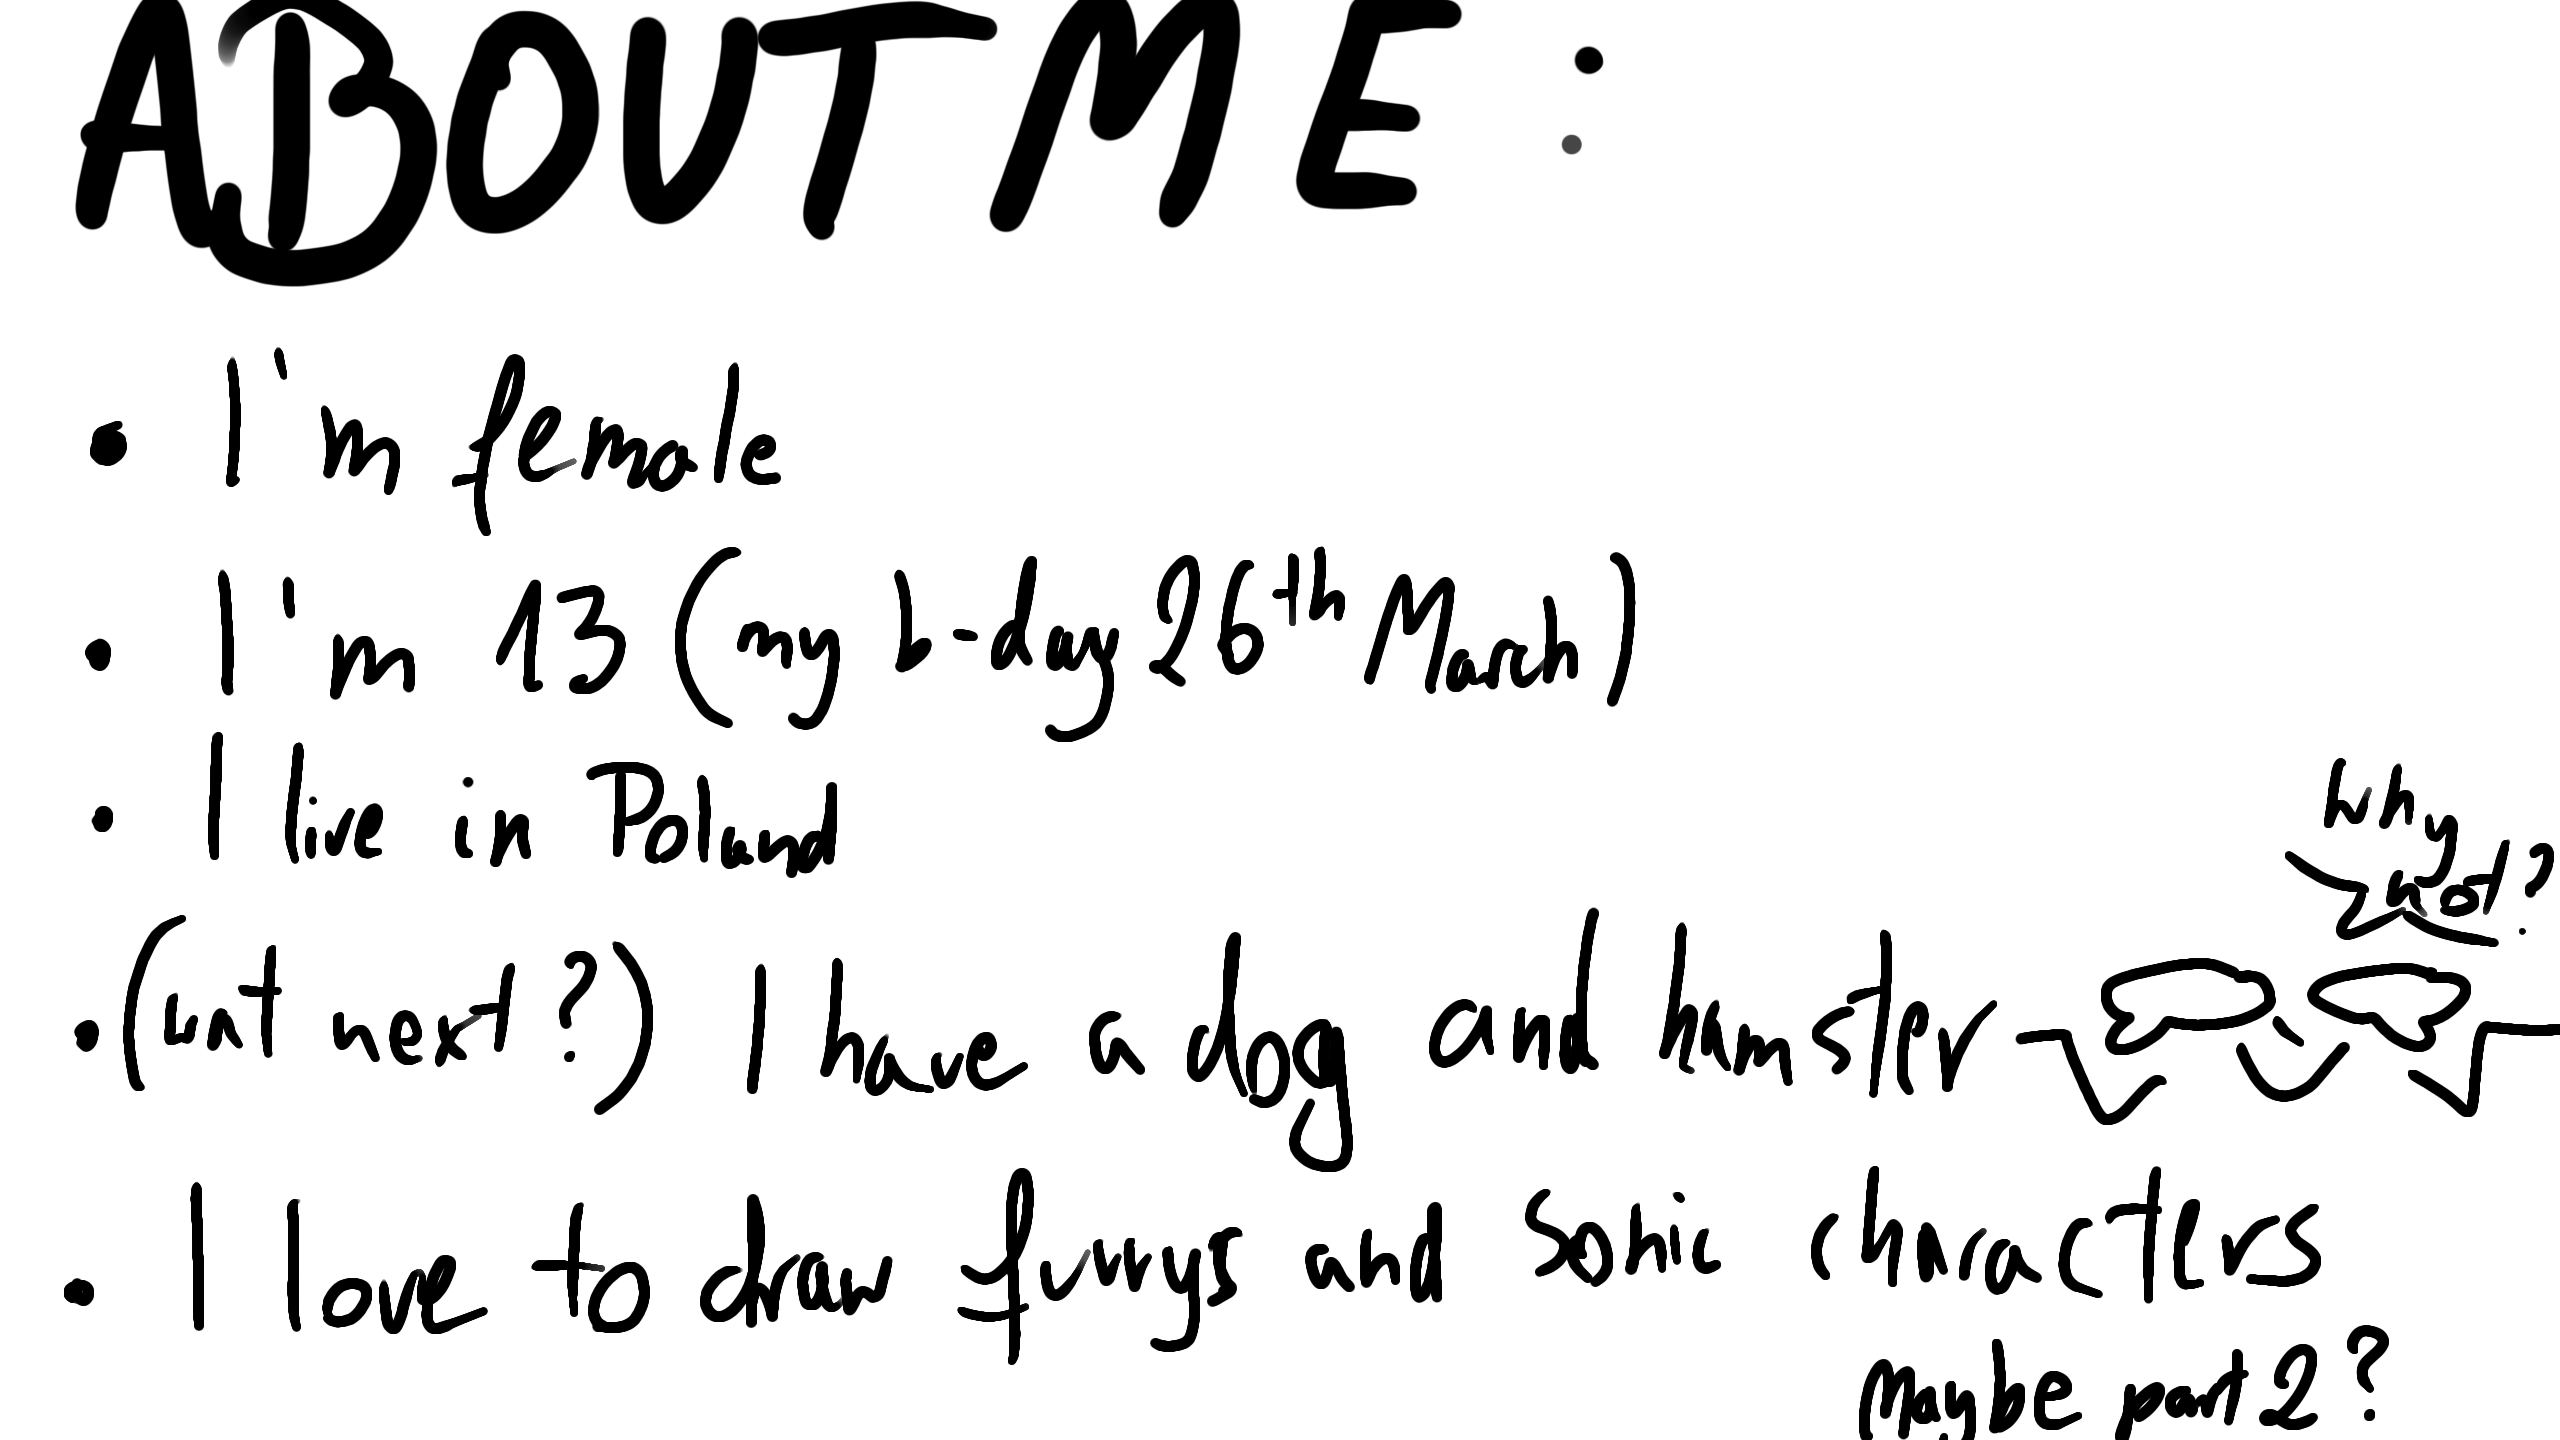 ABOUT ME :
• I'm female
• I'm 13 (my b-day 26th March)
• I live in Poland
why
not?
• (wat next?) I have a dog and hamster
• I love to draw furrys and Sonic characters
Maybe part 2?